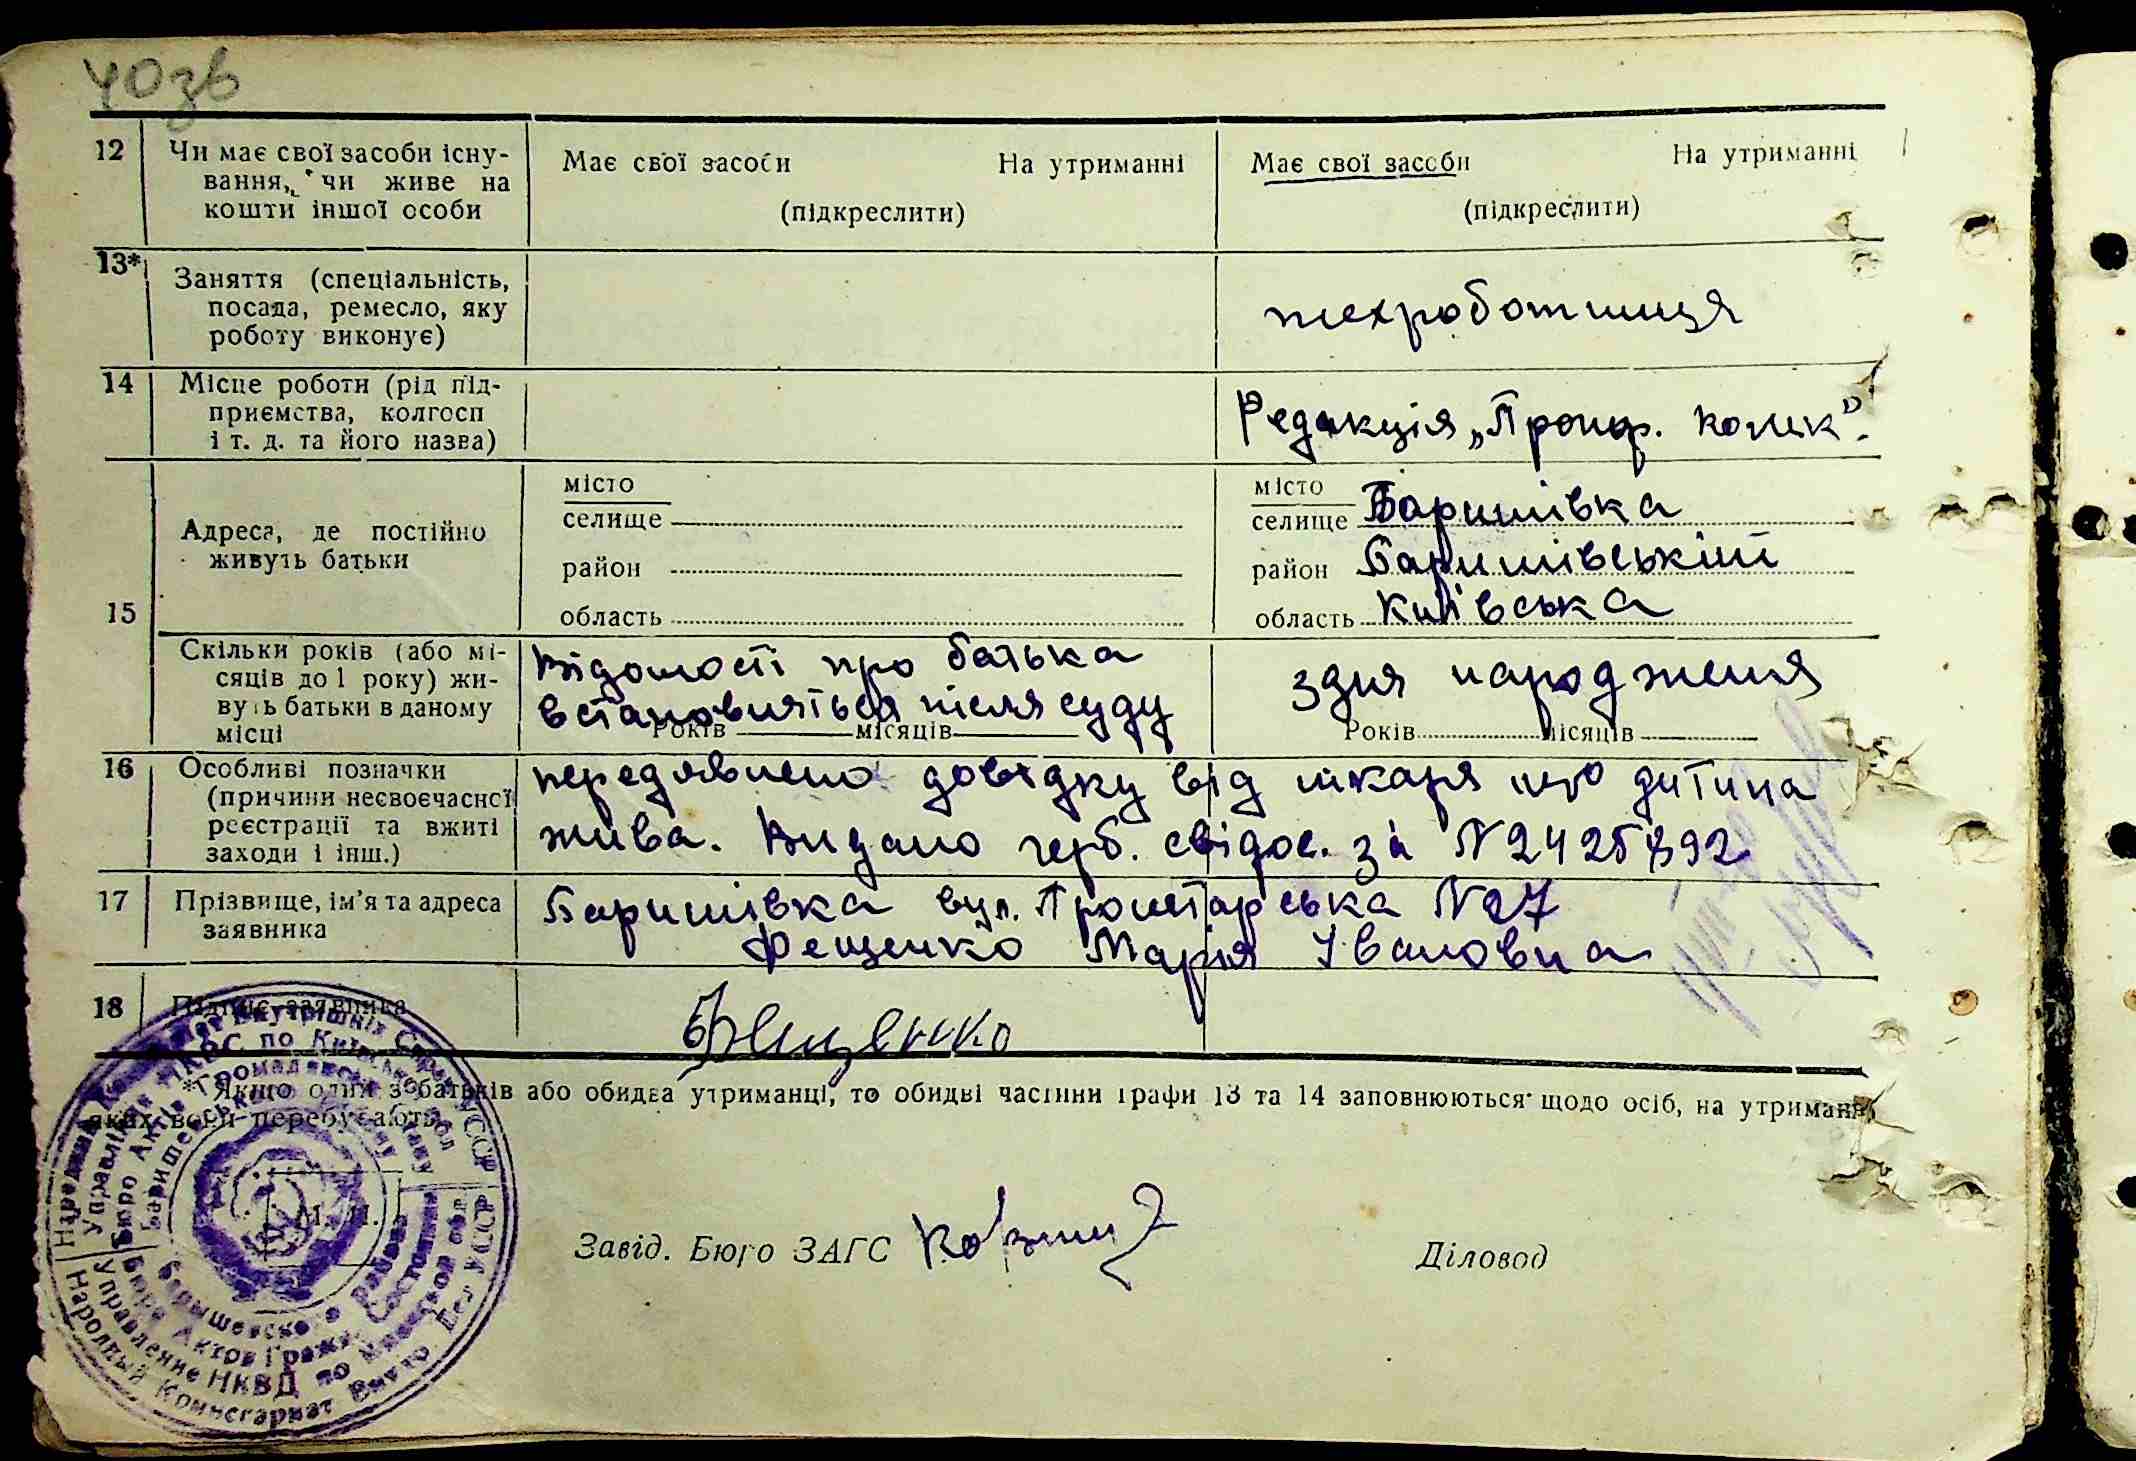 40зв
12 Чи має свої засоби існу-
вання, чи живе на
кошти іншої особи
Має свої засоби На утриманні
(підкреслити)
Має свої засоби На утриманні
(підкреслити)
13* Заняття (спеціальність,
посада, ремесло, яку
роботу виконує)
техроботниця
14 Місце роботи (рід під-
приємства, колгосп
і т. д. та його назва)
Редакція „
15
Адреса, де постійно
живуть батьки
місто
селище
район
область
місто
селище Баришівка
район Баришівський
область Київська
Скільки років (або мі-
сяців до 1 року) жи-
вуть батьки в даному
місці
Відомості про батька
встановляться після суду
Років місяців
з дня народження
Років місяців
16 Особливі позначки
(причини несвоєчасної
реєстрації та вжиті
заходи і інш.)
передявлено довідку від лікаря що дитина
жива. Видано герб. свідос. за N
17 Прізвище, ім'я та адреса
заявника
Баришівка вул. Пролетарська N 27
Фещенко Марія Івановна
18 Підпис заявника
Фещенко
*Якщо один з батьків або обидва утриманці, то обидві частини графи 13 та 14 заповнюються щодо осіб, на утриманні
яких вони перебувають.
М. П.
Завід. Бюро ЗАГС
Діловод
Народний Комісаріат Внутрішніх Справ УССР
Управління НКВС по Київській обл
Бюро Актів Громадянського Стану
Барышевского района
Бюро Актов Гражд. Состояния
Управление НКВД по Киевской обл
Народный Комиссариат Внутр. Дел УССР